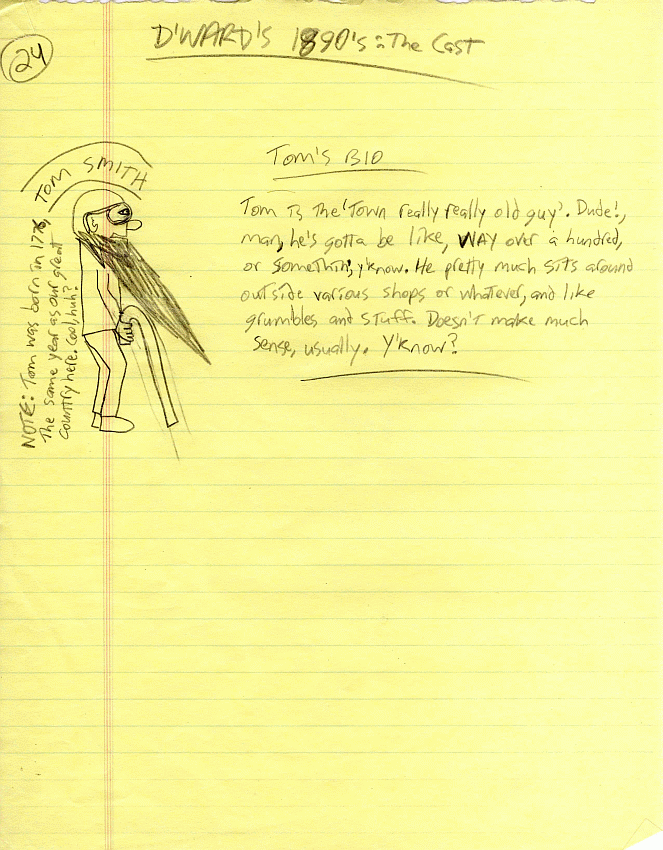 24
D'WARD'S 1890's: The Cast
TOM SMITH
NOTE: Tom was born in 1776,
the same year as our great
country here. Cool, huh?
Tom's BIO
Tom is the 'Town really really old guy'. Dude!,
man, he's gotta be like, WAY over a hundred,
or somethin', y'know. He pretty much sits around
outside various shops or whatever, and like
grumbles and stuff. Doesn't make much
sense, usually. Y'know?